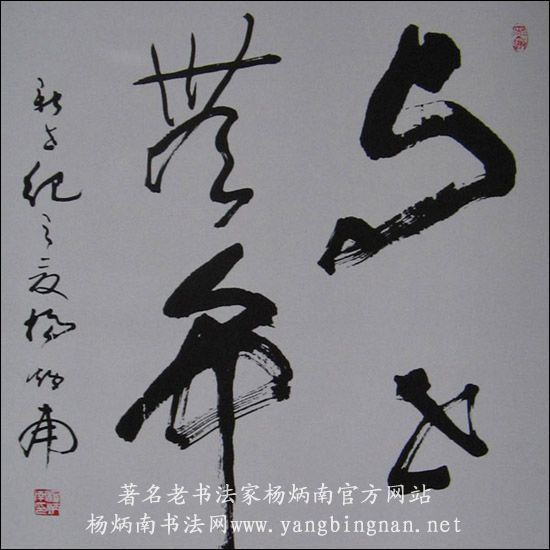 与世
無争
新世纪之夏杨炳南
著名老书法家杨炳南官方网站
杨炳南书法网www.yangbingnan.net